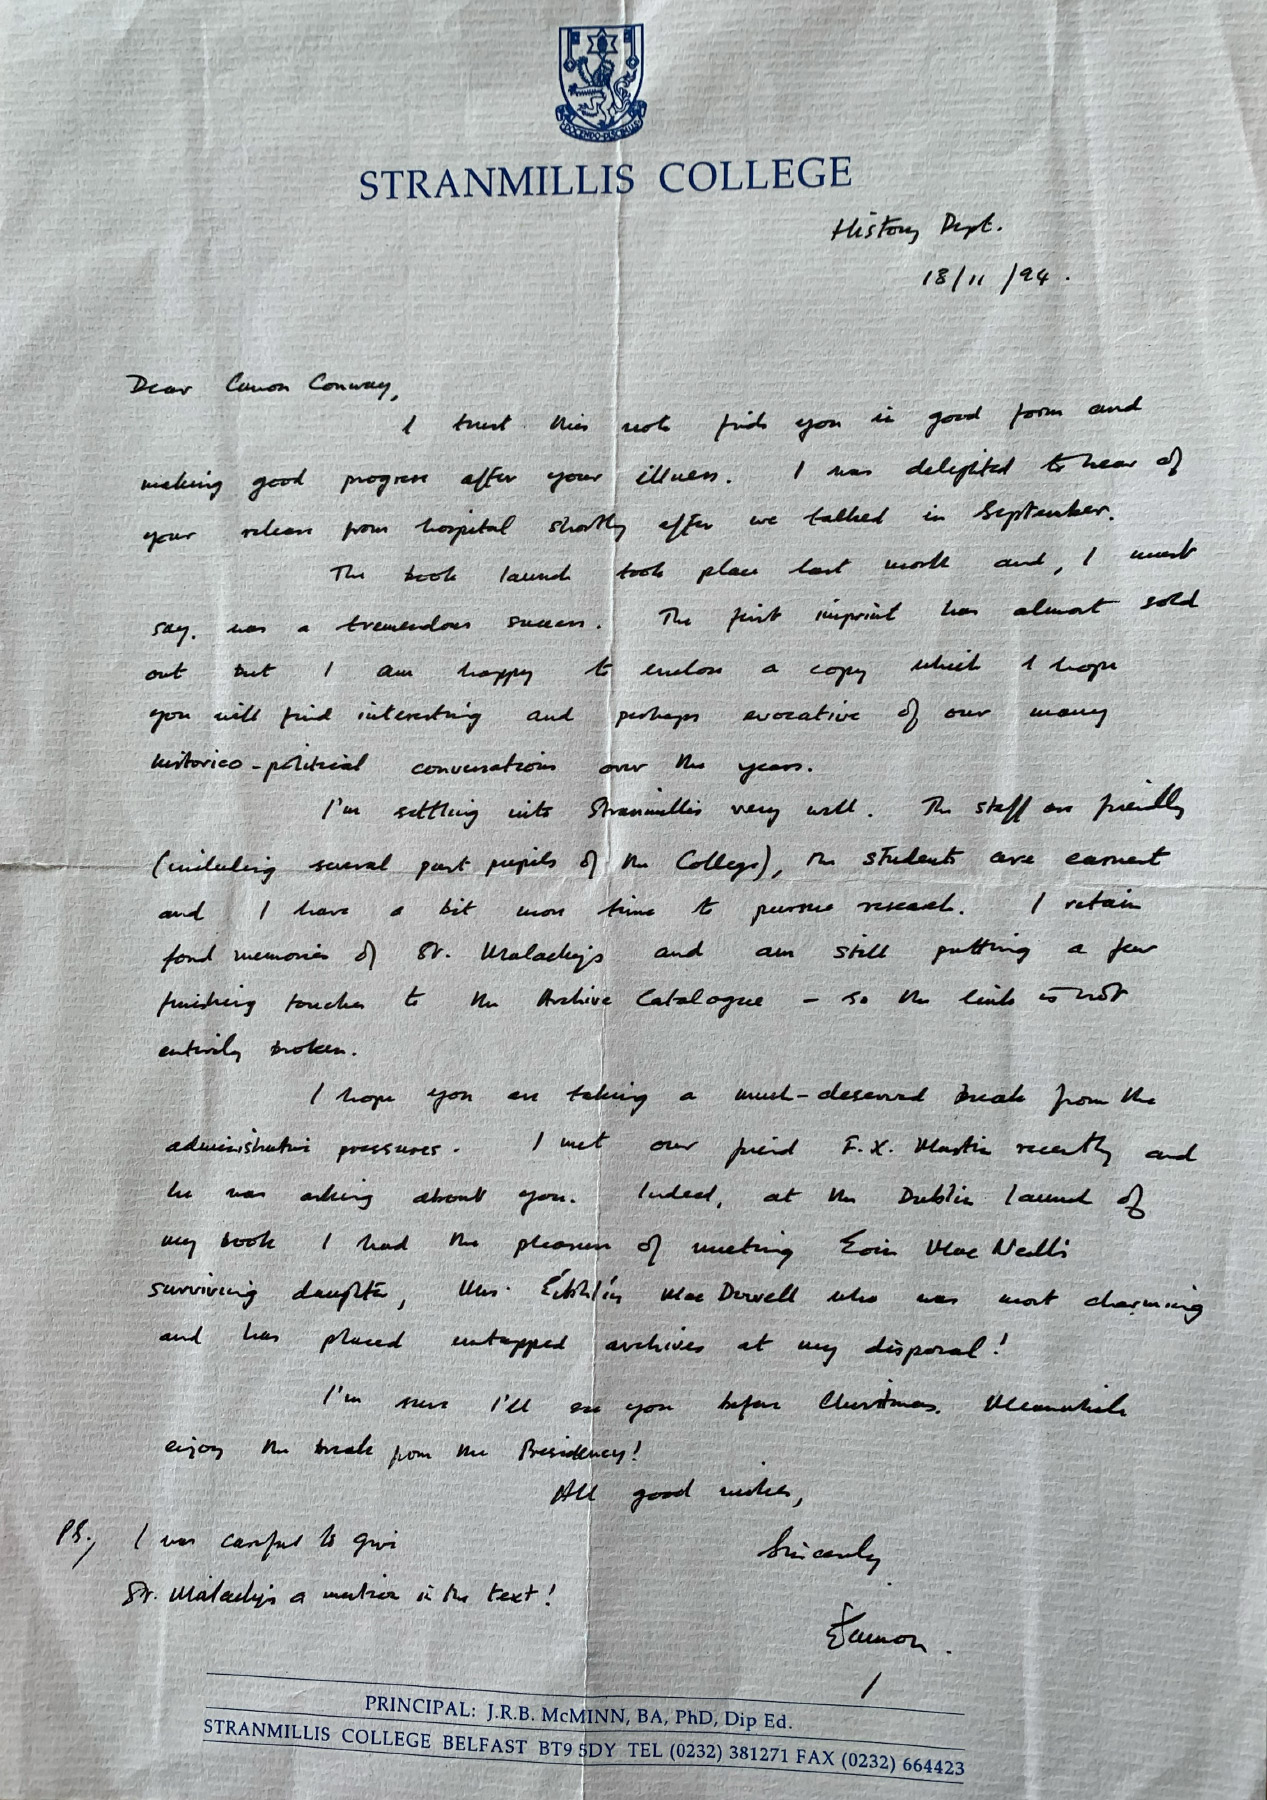 DOCENDO DISCIMUS
STRANMILLIS COLLEGE
History Dept.
18/11/94.
Dear Canon Conway,
I trust this note finds you in good form and
making good progress after your illness. I was delighted to hear of
your release from hospital shortly after we talked in September.
The book launch took place last month and, I must
say, was a tremendous success. The first imprint has almost sold
out but I am happy to enclose a copy which I hope
you will find interesting and perhaps evocative of our many
historico-political conversations over the years.
I'm settling into Stranmillis very well. The staff are friendly
(including several past pupils of the College), the students are earnest
and I have a bit more time to pursue research. I retain
fond memories of St. Malachy's and am still putting a few
finishing touches to the Archive Catalogue - so the link is not
entirely broken.
I hope you are taking a much-deserved break from the
administrative pressures. I met our friend F.X. Martin recently and
he was asking about you. Indeed, at the Dublin launch of
my book I had the pleasure of meeting Eoin Mac Neill's
surviving daughter, Mrs. Éibhlín Mac Dowell who was most charming
and has placed untapped archives at my disposal!
I'm sure I'll see you before Christmas. Meanwhile
enjoy the break from the Presidency!
All good wishes,
Sincerely
Éamon.
PS., I was careful to give
St. Malachy's a mention in the text!
PRINCIPAL: J.R.B. McMINN, BA, PhD, Dip Ed.
STRANMILLIS COLLEGE BELFAST BT9 5DY TEL (0232) 381271 FAX (0232) 664423